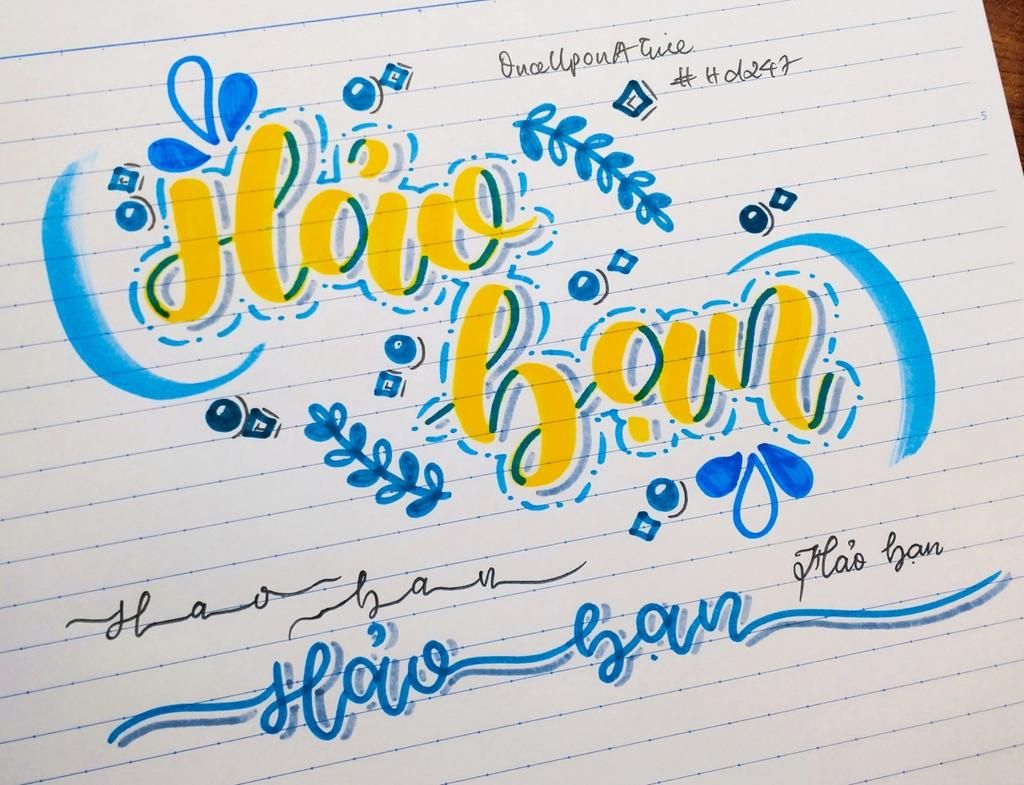 OnceUponATime
#Hd247
5
Hảo
bạn
Hảo bạn
Hao ban
Hảo bạn